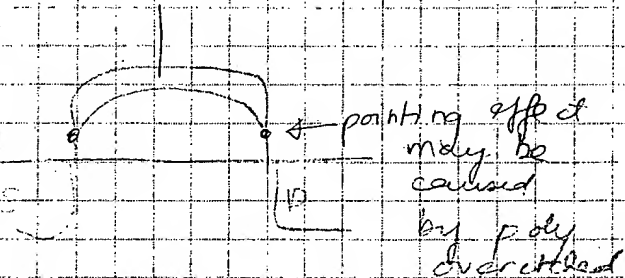 pointing effect
may be
caused
by poly
overetched
D